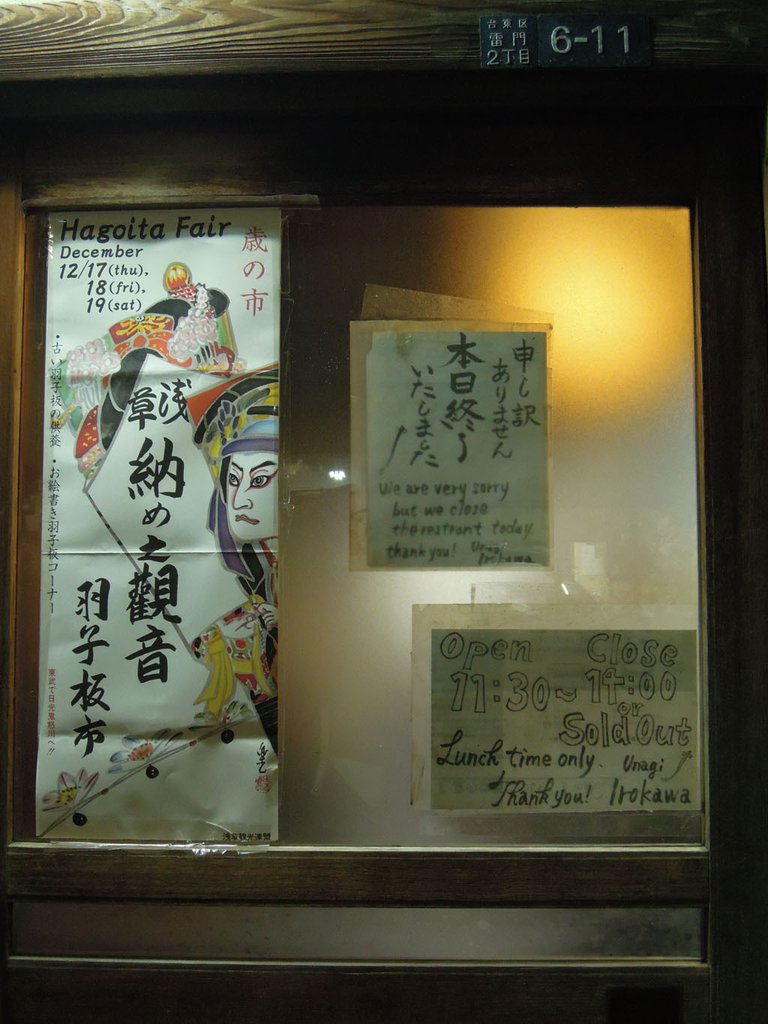 台東区
雷門
2丁目
6-11
Hagoita Fair
December
12/17(thu),
18(fri),
19(sat)
歳の市
・古い羽子板の供養 ・お絵書き羽子板コーナー
浅草
納め之觀音
羽子板市
東武で日光鬼怒川へ!!
浅草観光連盟
申し訳
ありません
本日終了
いたしました
We are very sorry
but we close
the restrant today
thank you! Unagi
Irokawa
Open Close
11:30~14:00
or
Sold Out
Lunch time only. Unagi
Thank you! Irokawa